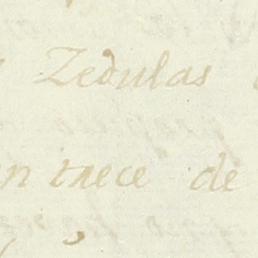 Zedulas
en trece de